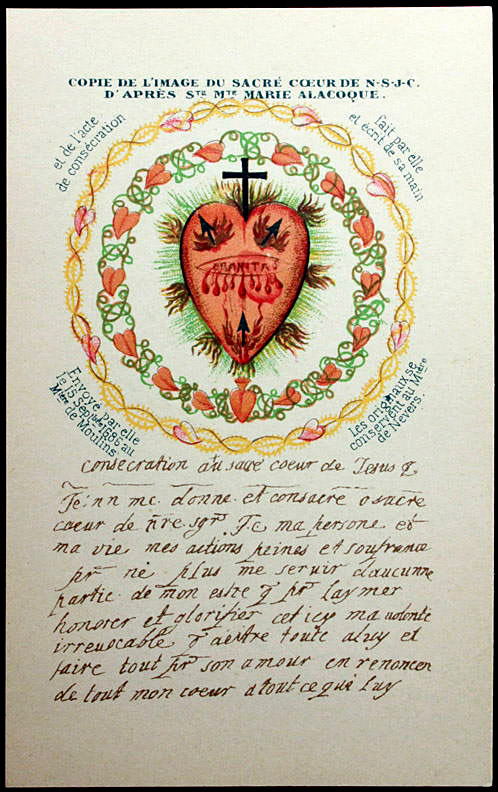 COPIE DE L'IMAGE DU SACRÉ CŒUR DE N-S-J-C.
D'APRÈS STE MTE MARIE ALACOQUE.
et de l'acte
de consécration
fait par elle
et écrit de sa main
CHARITAS
Envoyé par elle
le 15 Septbre 1686 au
Mtère de Moulins
Les originaux se
conservent au Mtère
de Nevers.
consecration au sacré coeur de Jesus
Je nn me donne et consacre o sacre
coeur de nre sgr J c ma persone et
ma vie mes actions peines et soufrance
pr ne plus me servir daucunne
partie de mon estre q pr laymer
honorer et glorifier cet icy ma volonté
irrevocable q destre toute a luy et
faire tout pr son amour en renoncen
de tout mon coeur a tout ce qui luy